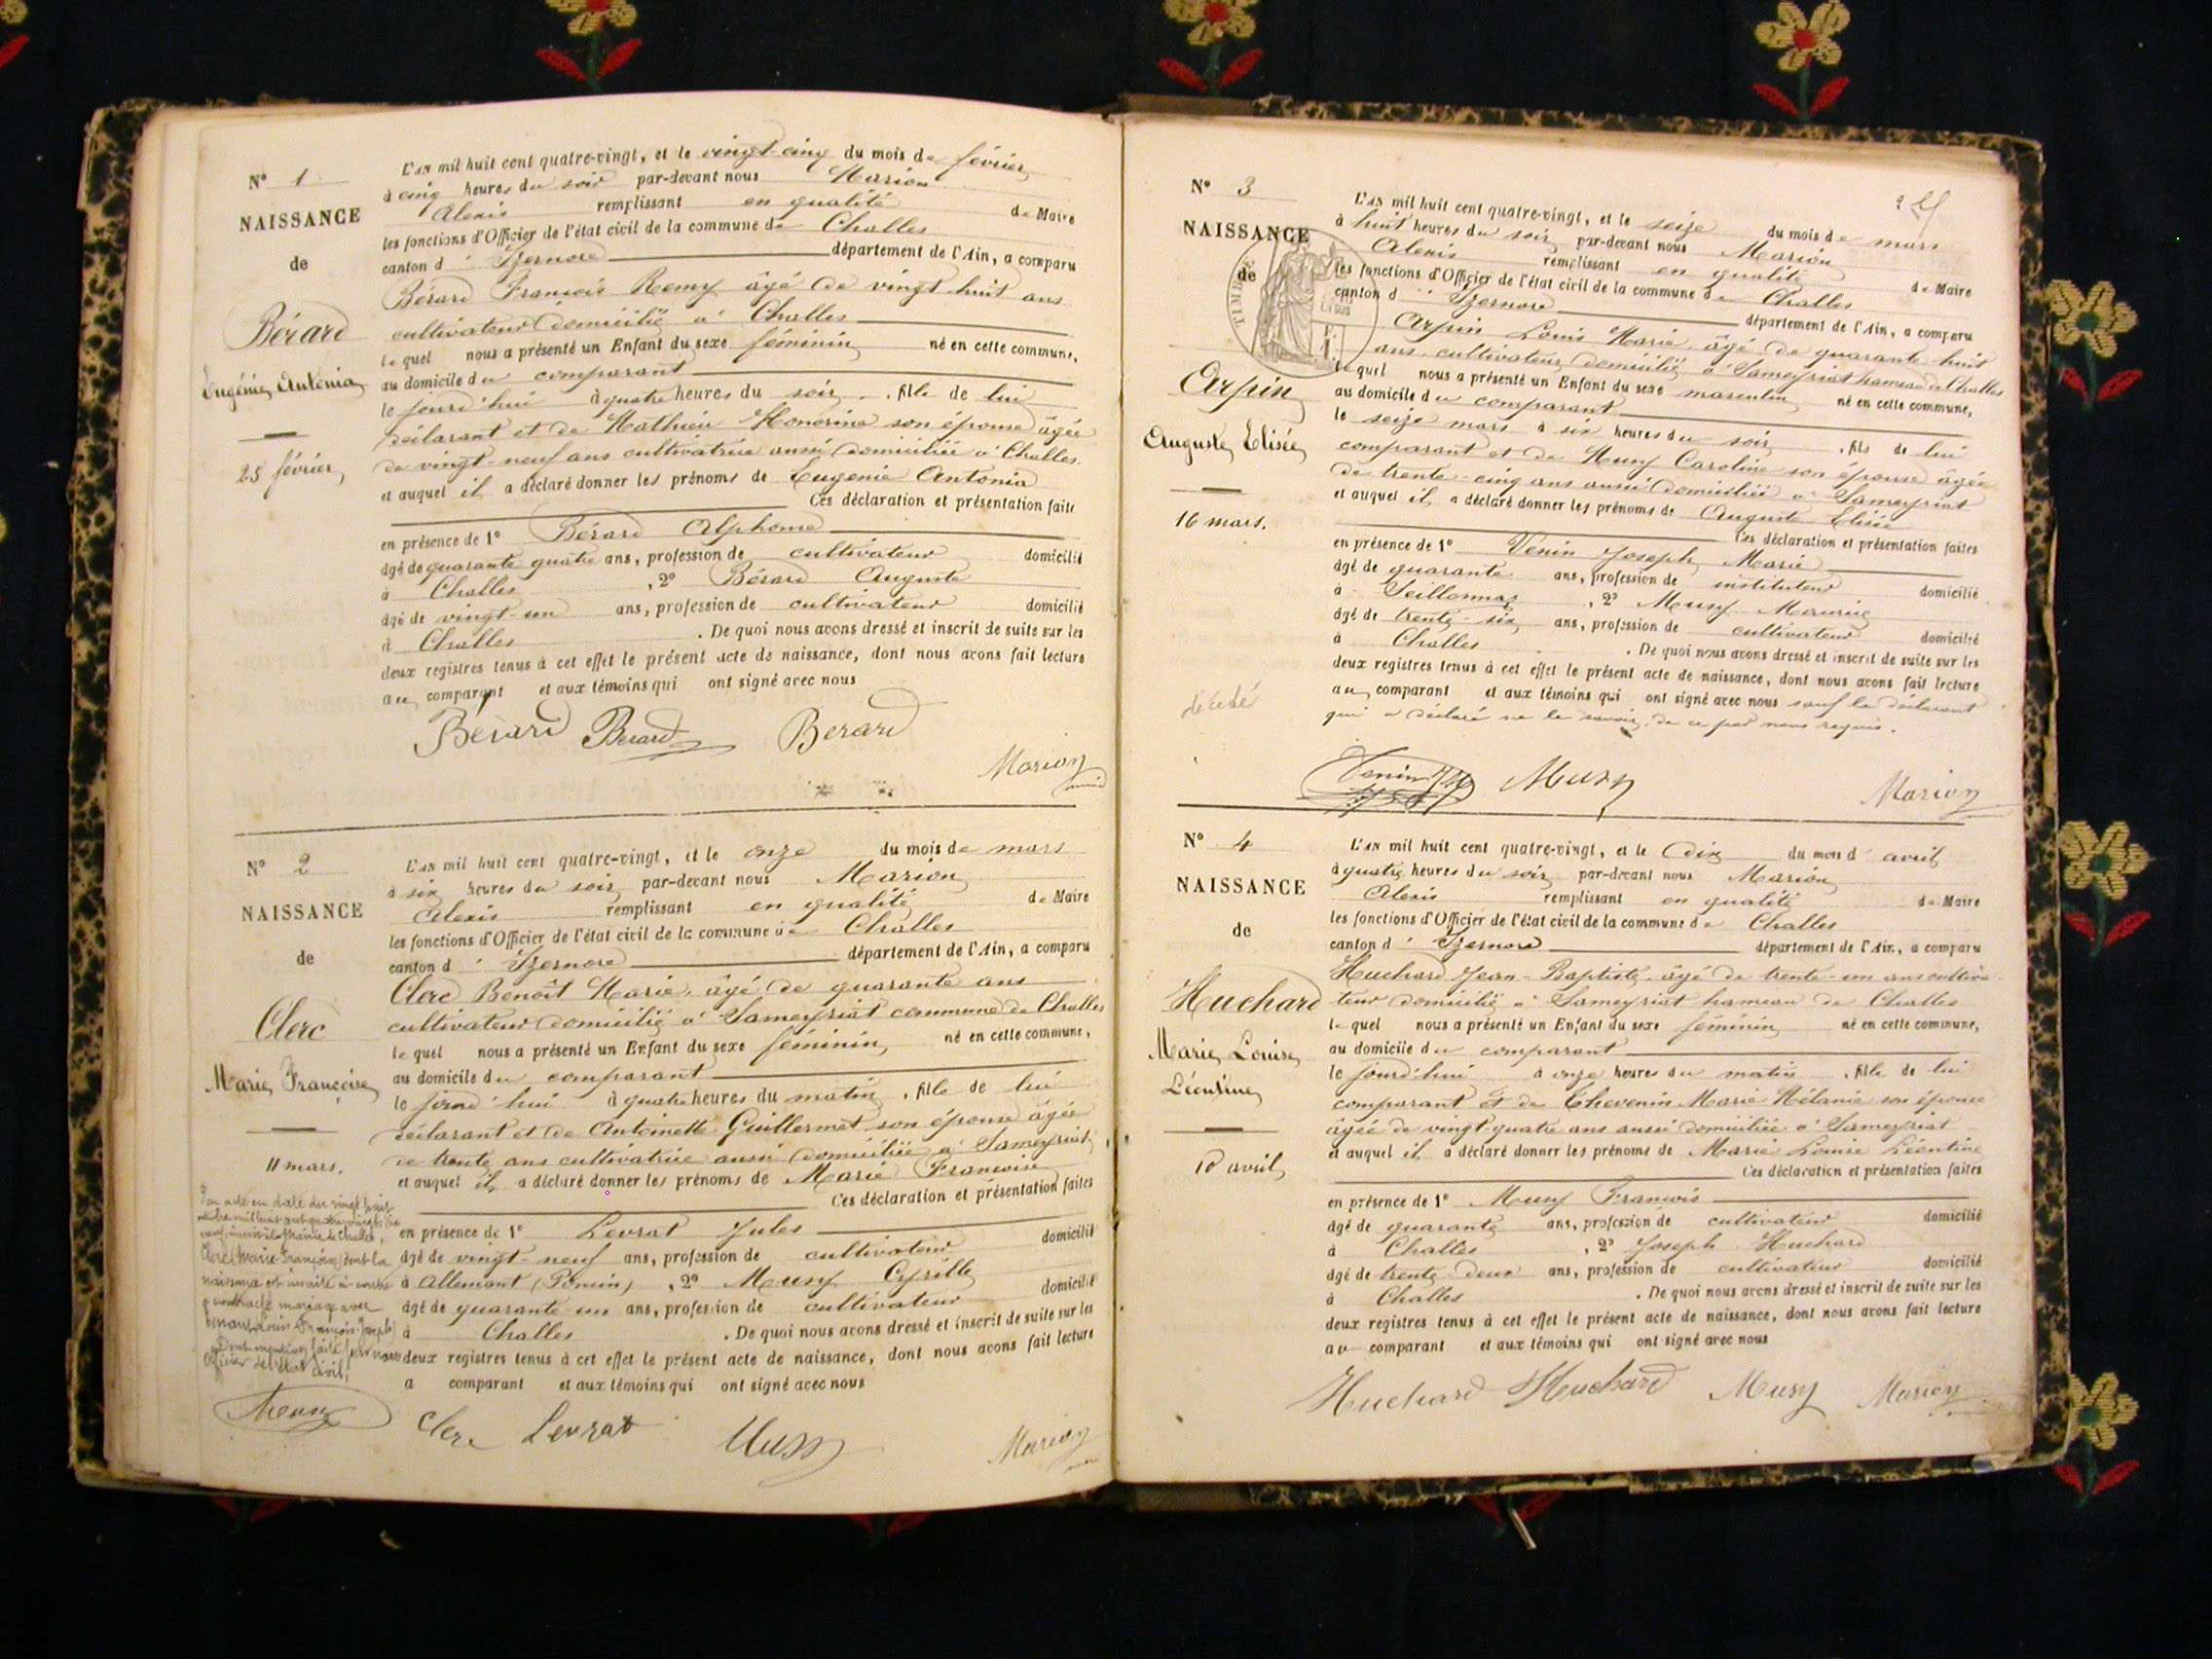 N° 1
NAISSANCE
de
Bérard
Eugénie Antonia
25 février
L'an mil huit cent quatre-vingt, et le vingt-cinq du mois de février
à cinq heures du soir par-devant nous Marion
Alexis remplissant en qualité de Maire
les fonctions d'Officier de l'état civil de la commune de Challes
canton d' Izernore département de l'Ain, a comparu
Bérard François Remy âgé de vingt huit ans
cultivateur domicilié à Challes
lequel nous a présenté un Enfant du sexe féminin né en cette commune,
au domicile du comparant
le jourd'hui à quatre heures du soir, fille de lui
déclarant et de Mathieu Honorine son épouse âgée
de vingt-neuf ans cultivatrice aussi domiciliée à Challes.
et auquel il a déclaré donner les prénoms de Eugénie Antonia
Ces déclaration et présentation faite
en présence de 1° Bérard Alphonse
âgé de quarante quatre ans, profession de cultivateur domicilié
à Challes , 2° Bérard Auguste
âgé de vingt-un ans, profession de cultivateur domicilié
à Challes . De quoi nous avons dressé et inscrit de suite sur les
deux registres tenus à cet effet le présent acte de naissance, dont nous avons fait lecture
au comparant et aux témoins qui ont signé avec nous
Bérard Berard Berard
Marion
N° 2
NAISSANCE
de
Clerc
Marie Françoise
11 mars.
L'an mil huit cent quatre-vingt, et le onze du mois de mars
à six heures du soir par-devant nous Marion
Alexis remplissant en qualité de Maire
les fonctions d'Officier de l'état civil de la commune de Challes
canton d' Izernore département de l'Ain, a comparu
Clerc Benoît Marie, âgé de quarante ans
cultivateur domicilié à Sameyriat commune de Challes
lequel nous a présenté un Enfant du sexe féminin, né en cette commune,
au domicile du comparant
le jourd'hui à quatre heures du matin, fille de lui
déclarant et de Antoinette Guillermet son épouse âgée
de trente ans cultivatrice aussi domiciliée à Sameyriat,
et auquel il a déclaré donner les prénoms de Marie Françoise
Ces déclaration et présentation faites
en présence de 1° Levrat Jules
âgé de vingt-neuf ans, profession de cultivateur domicilié
à Allement (Poncin) , 2° Musy Cyrille
âgé de quarante-un ans, profession de cultivateur domicilié
à Challes . De quoi nous avons dressé et inscrit de suite sur les
deux registres tenus à cet effet le présent acte de naissance, dont nous avons fait lecture
a comparant et aux témoins qui ont signé avec nous
Par acte en date du vingt huit
inscrit à la Mairie de Challes,
Clerc (Marie Françoise) dont la
naissance est inscrite ci-contre
a contracté mariage avec
Louis François Joseph
Dont mention faite par nous
Officier de l'état civil,
Clerc Levrat Musy Marion
N° 3
NAISSANCE
de
TIMBRE
Arpin
Auguste Elisée
16 mars.
décédé
L'an mil huit cent quatre-vingt, et le seize du mois de mars
à huit heures du soir par-devant nous Marion
Alexis remplissant en qualité de Maire
les fonctions d'Officier de l'état civil de la commune de Challes
canton d' Izernore département de l'Ain, a comparu
Arpin Louis Marie âgé de quarante-huit
ans cultivateur domicilié à Sameyriat hameau de Challes
lequel nous a présenté un Enfant du sexe masculin né en cette commune,
au domicile du comparant
le seize mars à six heures du soir, fils de lui
comparant et de Musy Caroline son épouse âgée
de trente-cinq ans aussi domiciliée à Sameyriat
et auquel il a déclaré donner les prénoms de Auguste Elisée
Ces déclaration et présentation faites
en présence de 1° Venin Joseph Marie
âgé de quarante ans, profession de instituteur domicilié
à Seillonnas , 2° Musy Maurice
âgé de trente-six ans, profession de cultivateur domicilié
à Challes . De quoi nous avons dressé et inscrit de suite sur les
deux registres tenus à cet effet le présent acte de naissance, dont nous avons fait lecture
au comparant et aux témoins qui ont signé avec nous sauf le déclarant
qui a déclaré ne le savoir, de ce par nous requis.
Venin Musy Marion
N° 4
NAISSANCE
de
Huchard
Marie Louise
Léontine
10 avril
L'an mil huit cent quatre-vingt, et le dix du mois d' avril
à quatre heures du soir par-devant nous Marion
Alexis remplissant en qualité de Maire
les fonctions d'Officier de l'état civil de la commune de Challes
canton d' Izernore département de l'Ain, a comparu
Huchard Jean-Baptiste âgé de trente-un ans cultiva-
teur domicilié à Sameyriat hameau de Challes
lequel nous a présenté un Enfant du sexe féminin né en cette commune,
au domicile du comparant
le jourd'hui à onze heures du matin, fille de lui
comparant et de Chevenin Marie Mélanie son épouse
âgée de vingt quatre ans aussi domiciliée à Sameyriat
et auquel il a déclaré donner les prénoms de Marie Louise Léontine
Ces déclaration et présentation faites
en présence de 1° Musy François
âgé de quarante ans, profession de cultivateur domicilié
à Challes , 2° Joseph Huchard
âgé de trente-deux ans, profession de cultivateur domicilié
à Challes . De quoi nous avons dressé et inscrit de suite sur les
deux registres tenus à cet effet le présent acte de naissance, dont nous avons fait lecture
au comparant et aux témoins qui ont signé avec nous
Huchard Huchard Musy Marion